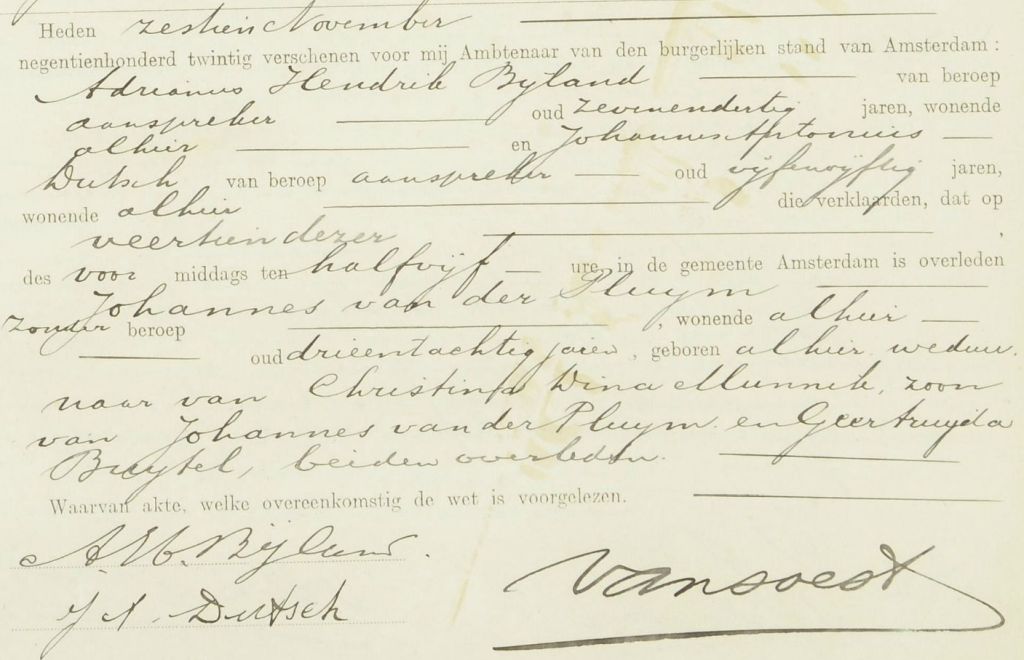 Heden zestien November
negentienhonderd twintig verschenen voor mij Ambtenaar van den burgerlijken stand van Amsterdam:
Adrianus Hendrik Byland van beroep
aanspreker oud zevenendertig jaren, wonende
alhier en Johannes Antonius
Dutsch van beroep aanspreker oud vijfenvijftig jaren,
wonende alhier die verklaarden, dat op
veertien dezer,
des voor middags ten half vijf ure, in de gemeente Amsterdam is overleden
Johannes van der Pluym
zonder beroep, wonende alhier
oud drieentachtig jaren, geboren alhier, weduw-
naar van Christina Dina Munnik, zoon
van Johannes van der Pluym en Geertruyda
Buytel, beiden overleden.
Waarvan akte, welke overeenkomstig de wet is voorgelezen.
A. H. Bijland.
J A. Dutsch
van Soest